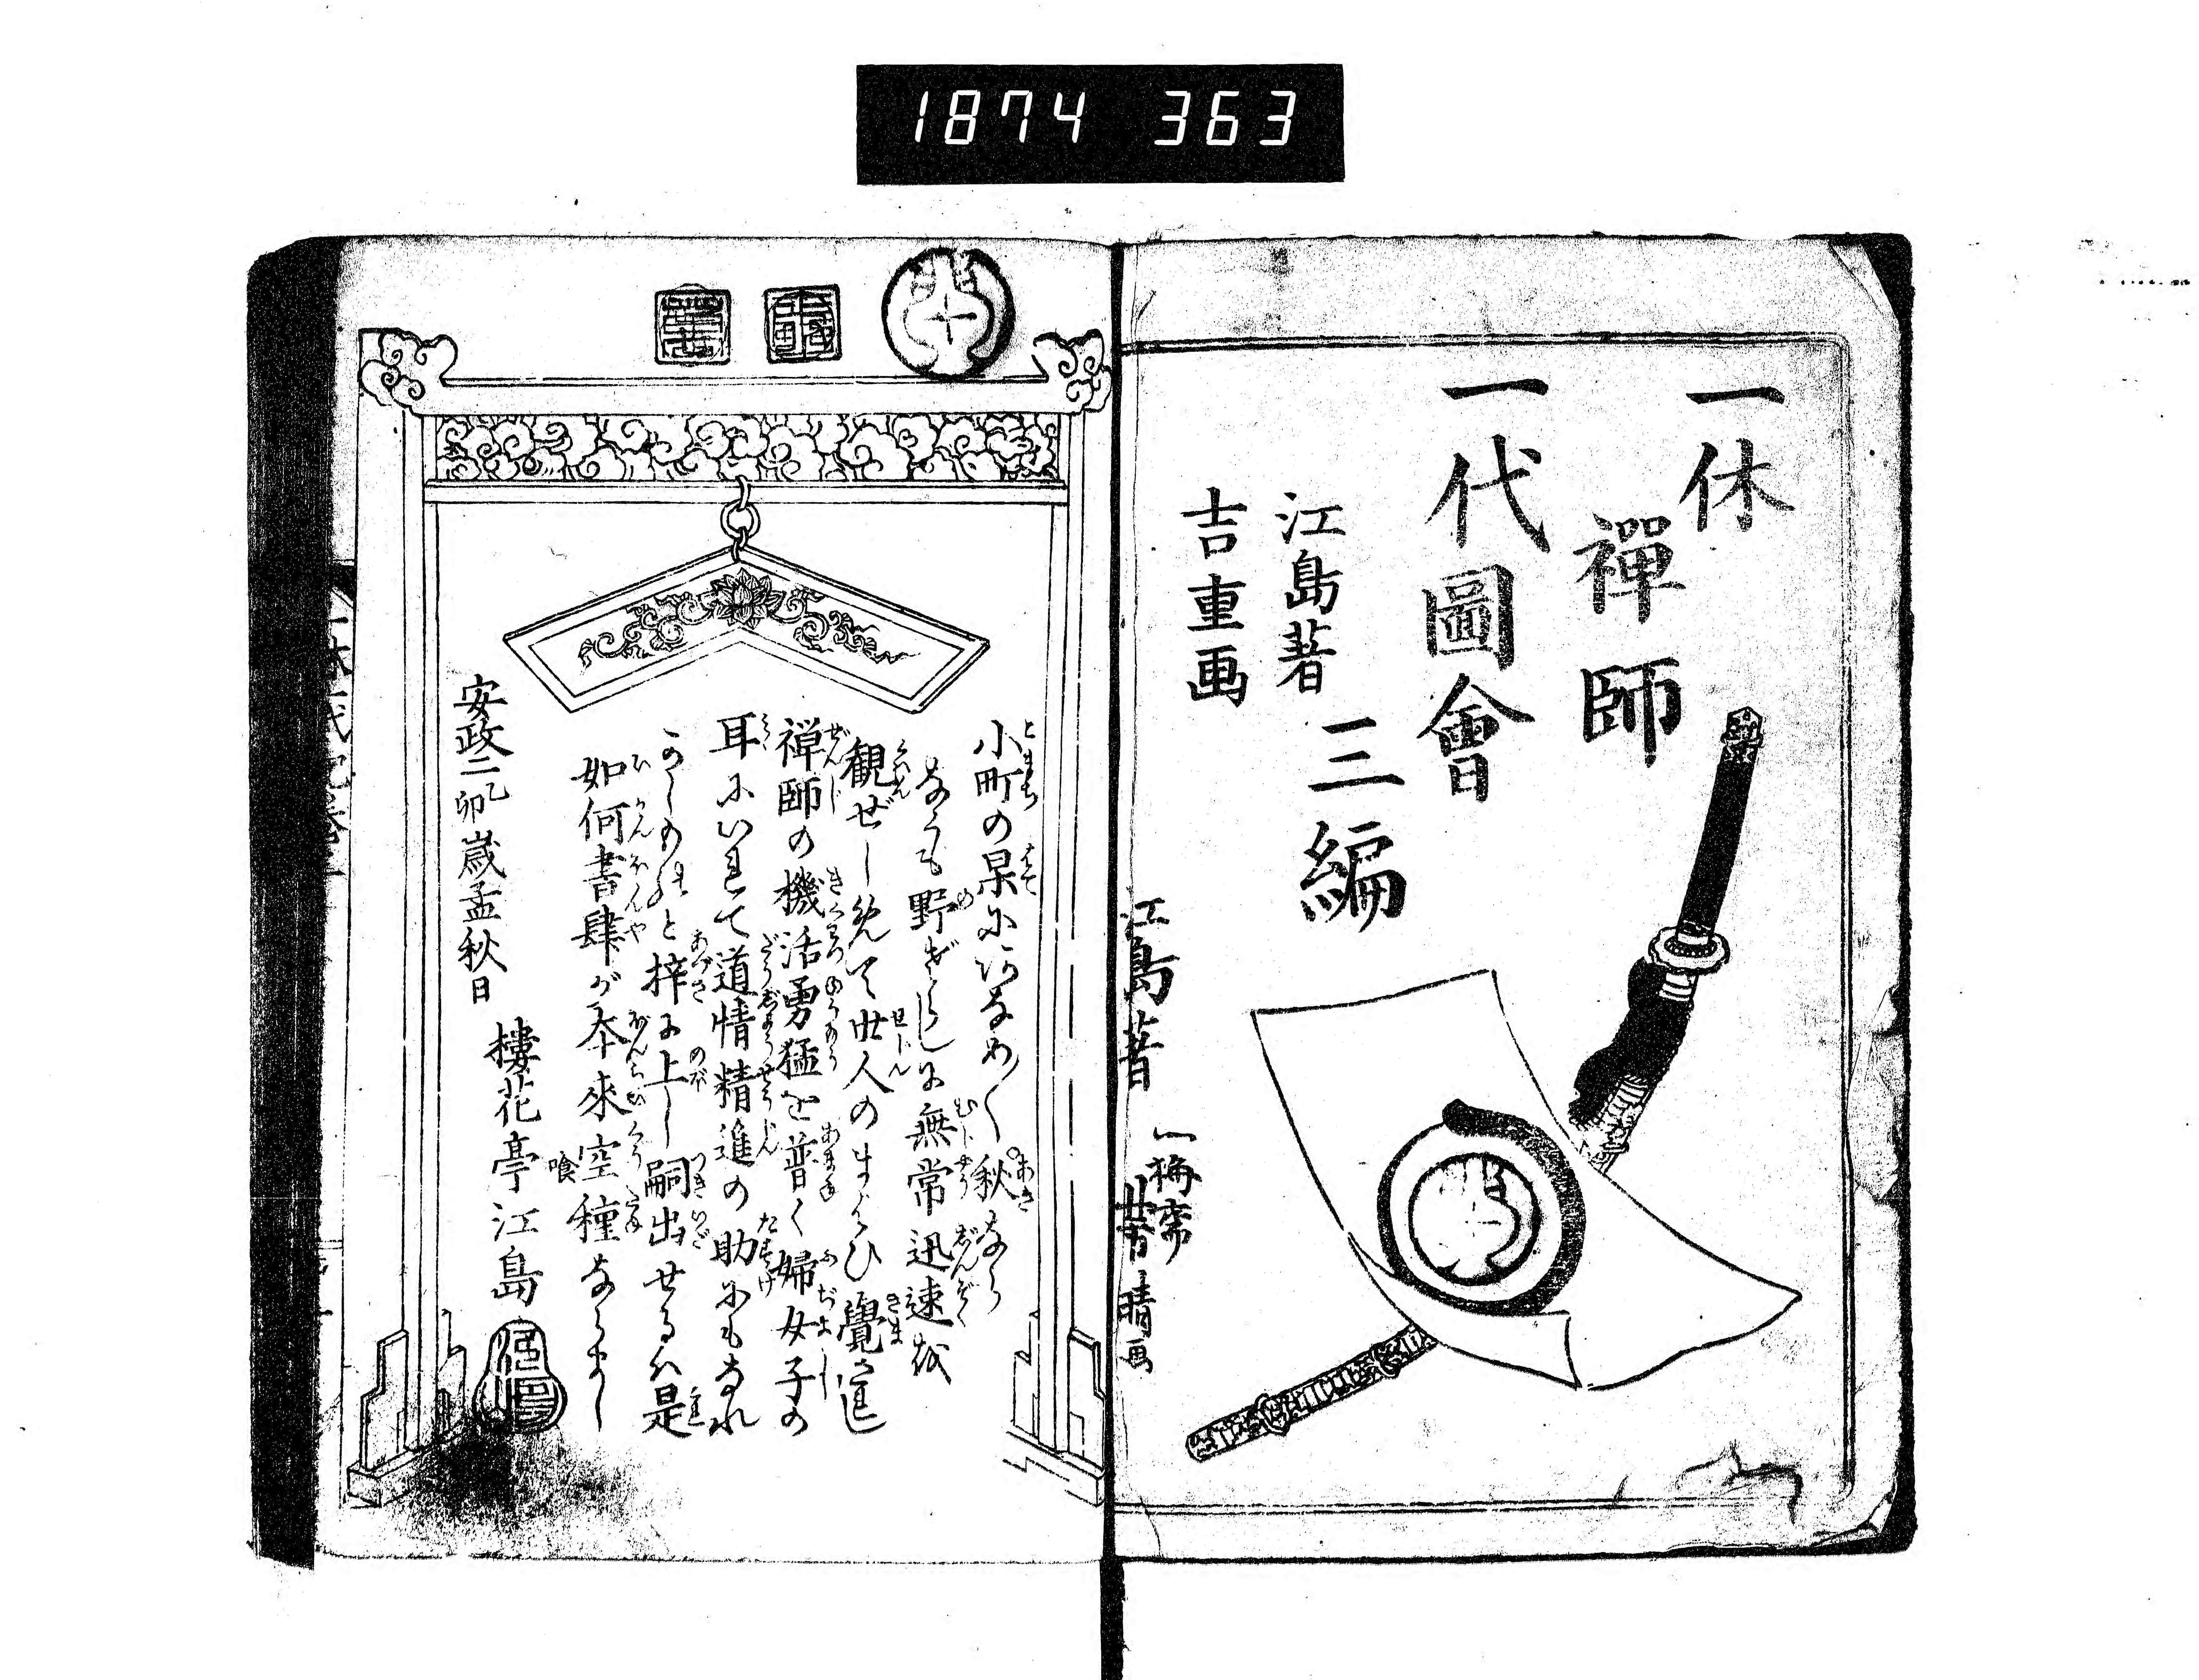 1874 363
一休
禪師
一代圖會
三編
江島著
吉重画
江島著
一梅齋
芳晴画
小町の杲に穴なめく秋なら
なくも野ざらしに無常迅速を
観ぜしめて世人のまよひ覺さ
禅師の機活勇猛を普く婦女子の
耳にいれて道情精進の助にもなれ
かしの
と梓に上し嗣出せるハ是
如何書肆が本來空種ならまし
喰
安政二乙卯歳孟秋日
棲花亭江島